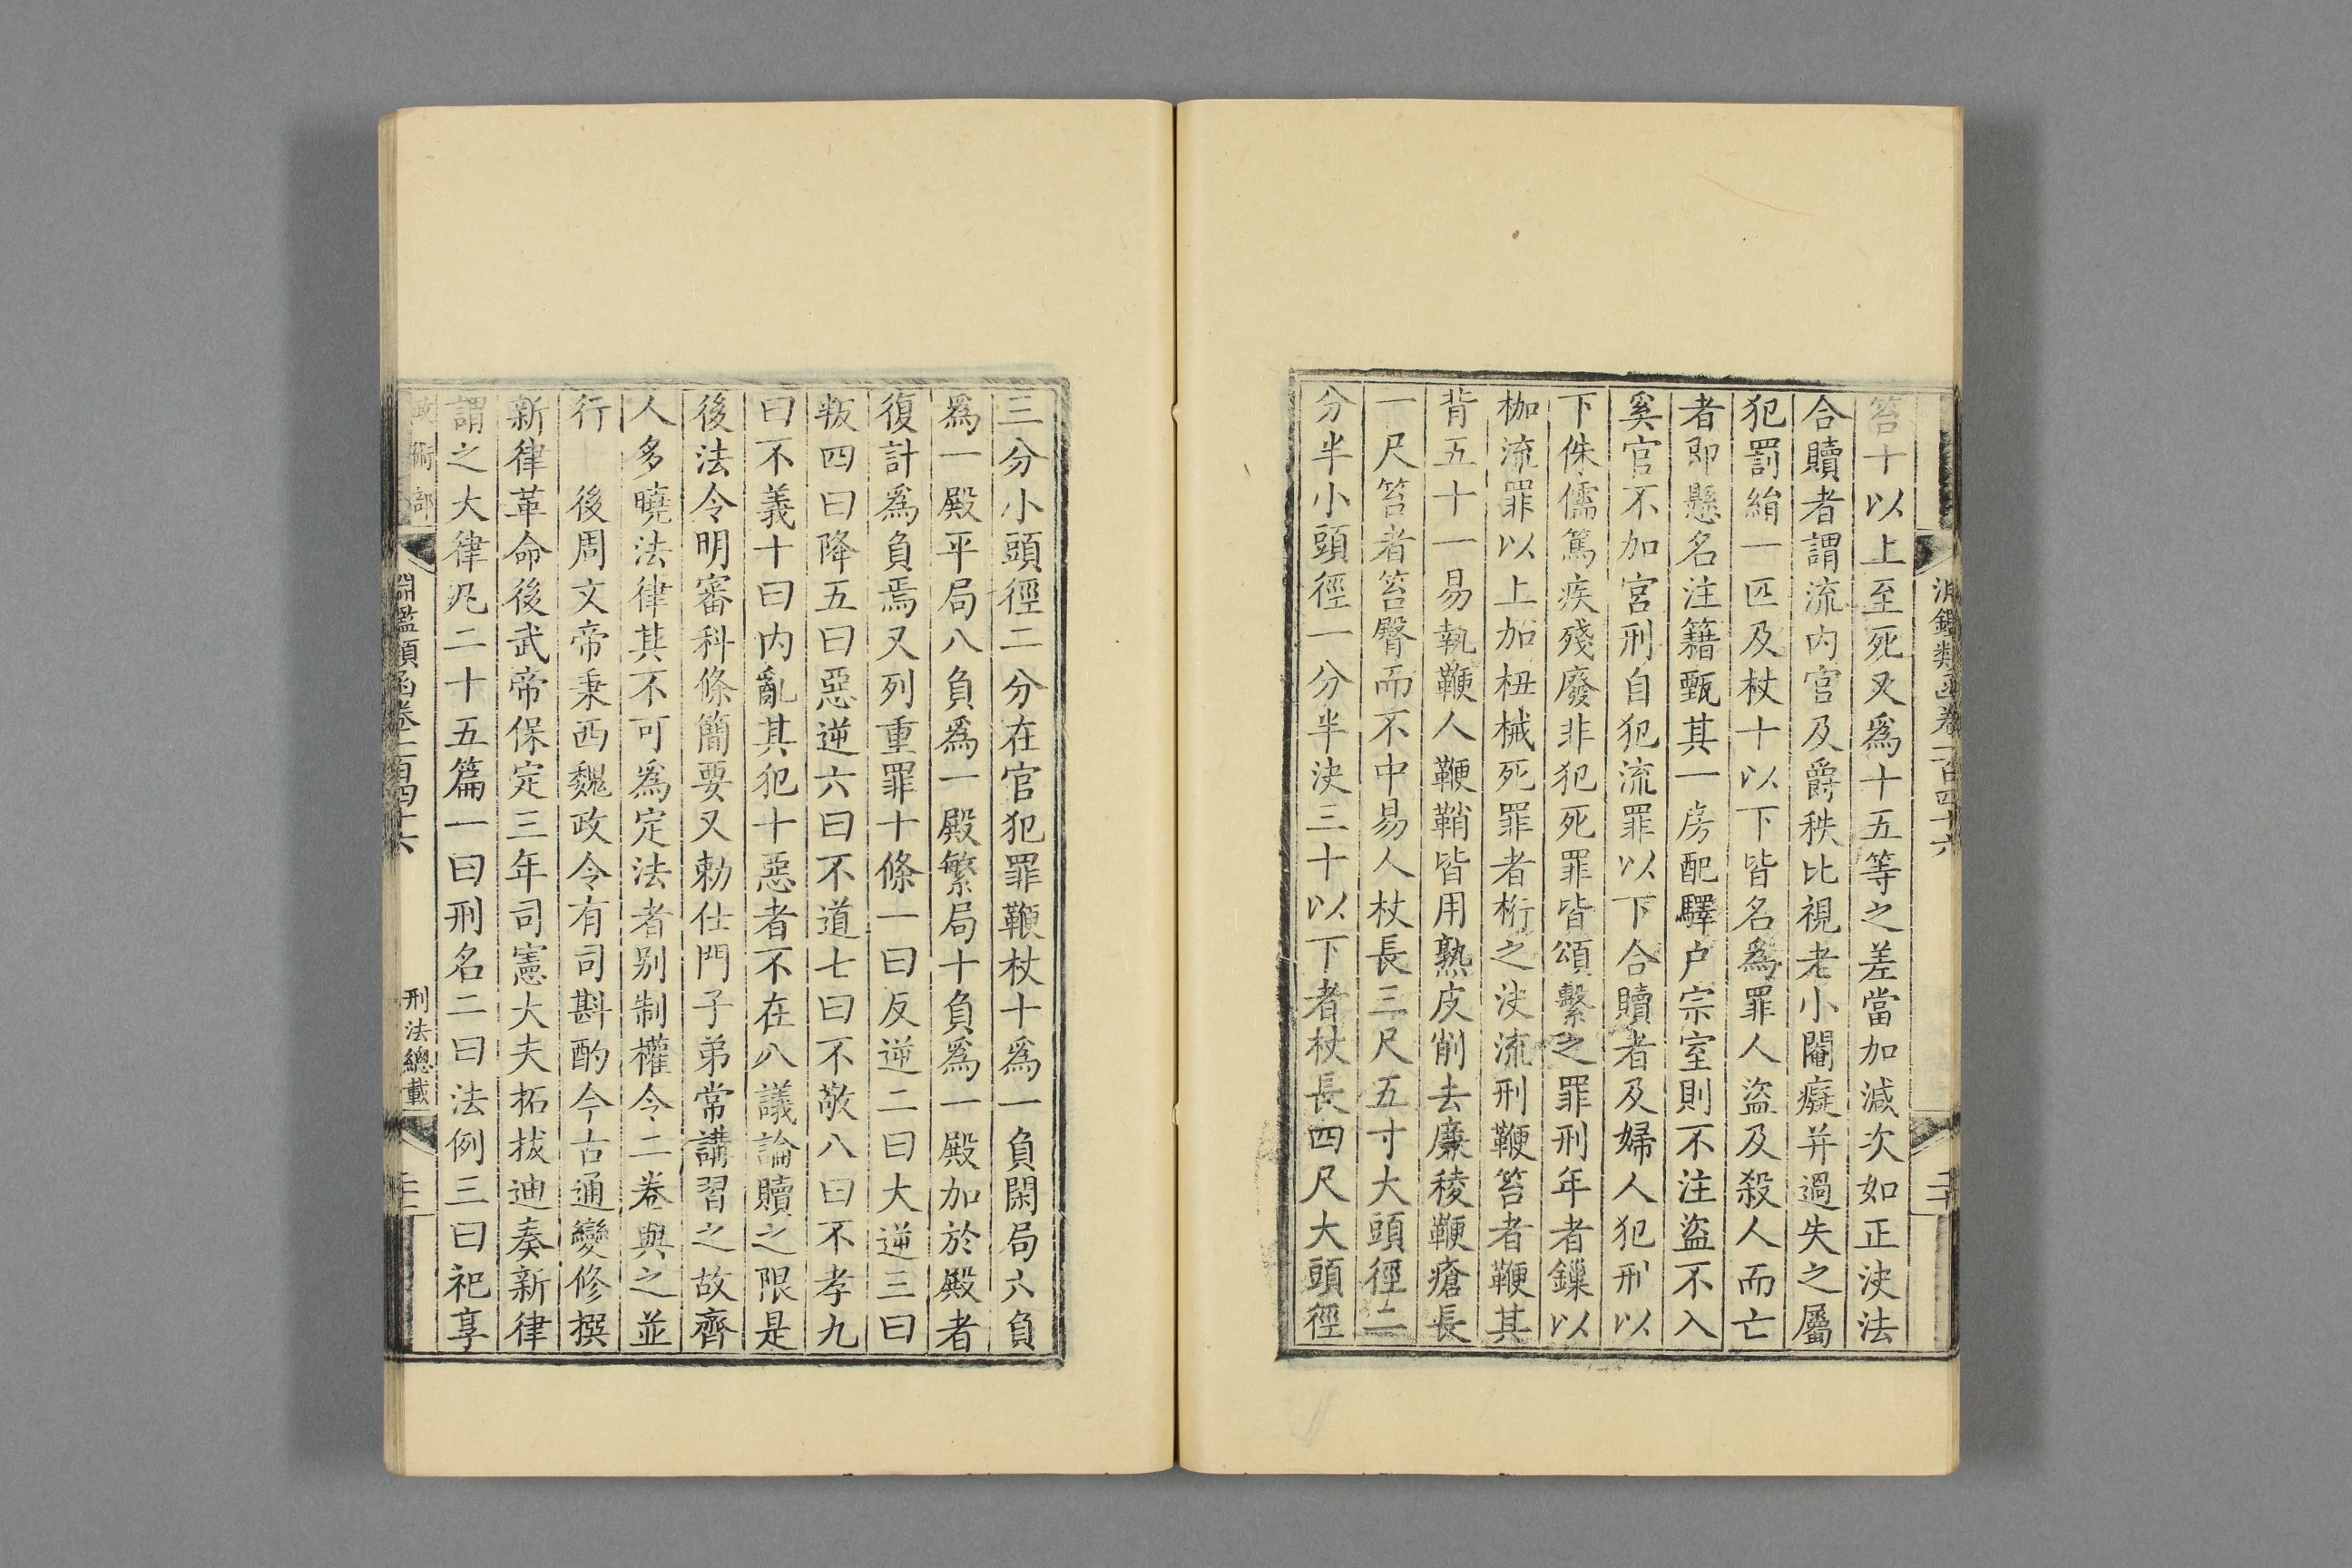 淵鑑類函卷一百四十六
二十
笞十以上至死又爲十五等之差當加減次如正決法
合贖者謂流内官及爵秩比視老小閹癡并過失之屬
犯罰絹一匹及杖十以下皆名爲罪人盜及殺人而亡
者即懸名注籍甄其一房配驛户宗室則不注盜不入
奚官不加宮刑自犯流罪以下合贖者及婦人犯刑以
下侏儒篤疾殘廢非犯死罪皆頌繫之罪刑年者鏁以
枷流罪以上加杻械死罪者桁之決流刑鞭笞者鞭其
背五十一易執鞭人鞭鞘皆用熟皮削去廉稜鞭瘡長
一尺笞者笞臀而不中易人杖長三尺五寸大頭徑二
分半小頭徑一分半決三十以下者杖長四尺大頭徑
三分小頭徑二分在官犯罪鞭杖十爲一負閑局六負
爲一殿平局八負爲一殿繁局十負爲一殿加於殿者
復計爲負焉又列重罪十條一曰反逆二曰大逆三曰
叛四曰降五曰惡逆六曰不道七曰不敬八曰不孝九
曰不義十曰内亂其犯十惡者不在八議論贖之限是
後法令明審科條簡要又勅仕門子弟常講習之故齊
人多曉法律其不可爲定法者别制權令二卷與之並
行　後周文帝秉西魏政令有司斟酌今古通變修撰
新律革命後武帝保定三年司憲大夫拓拔迪奏新律
謂之大律凡二十五篇一曰刑名二曰法例三曰祀享
術部
淵鑑類函卷一百四十六
刑法總載